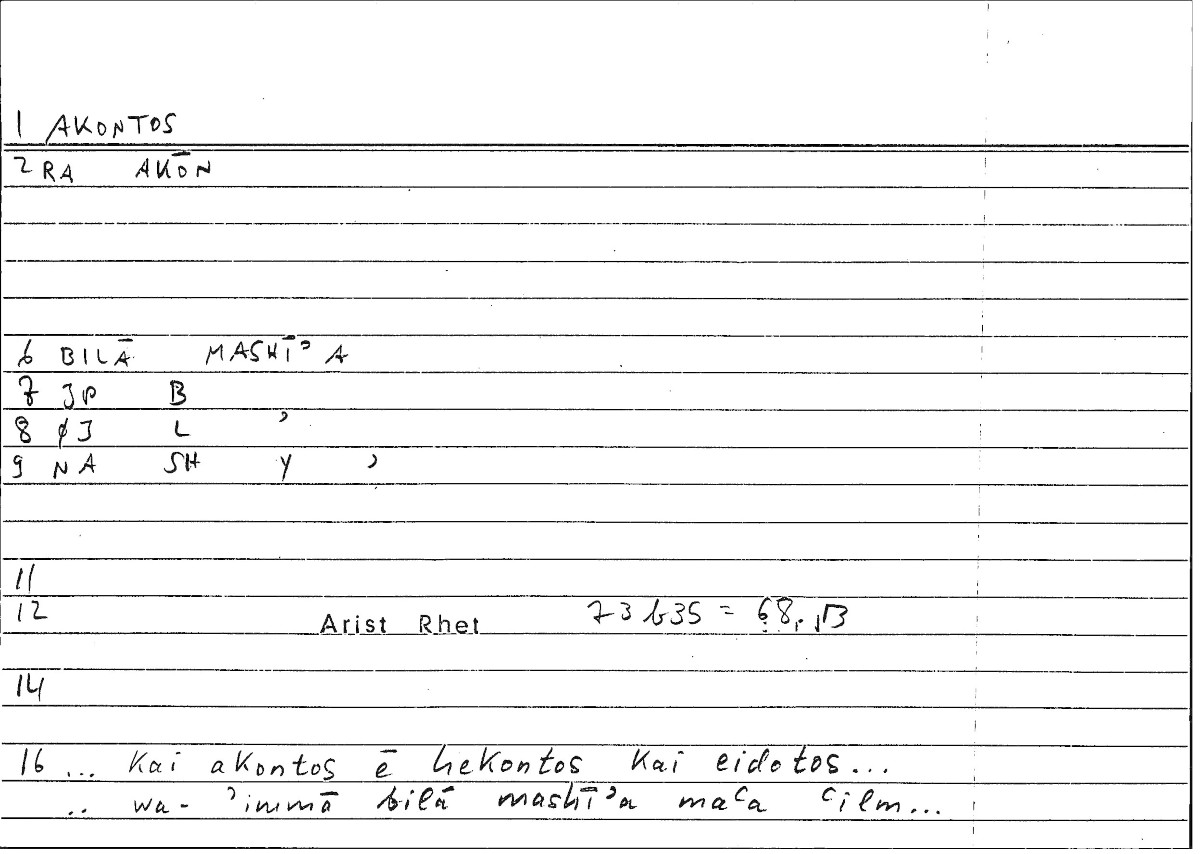 1 AKONTOS
2 RA AKŌN
6 BILĀ MASHĪʾA
7 JP B
8 ØJ L ʾ
9 NA SH Y ʾ
11
12 Arist Rhet 73b35 = 68,13
14
16 ... Kai akontos ē hekontos Kai eidotos...
.. wa- ʾimmā bilā mashīʾa maʿa ʿilm...